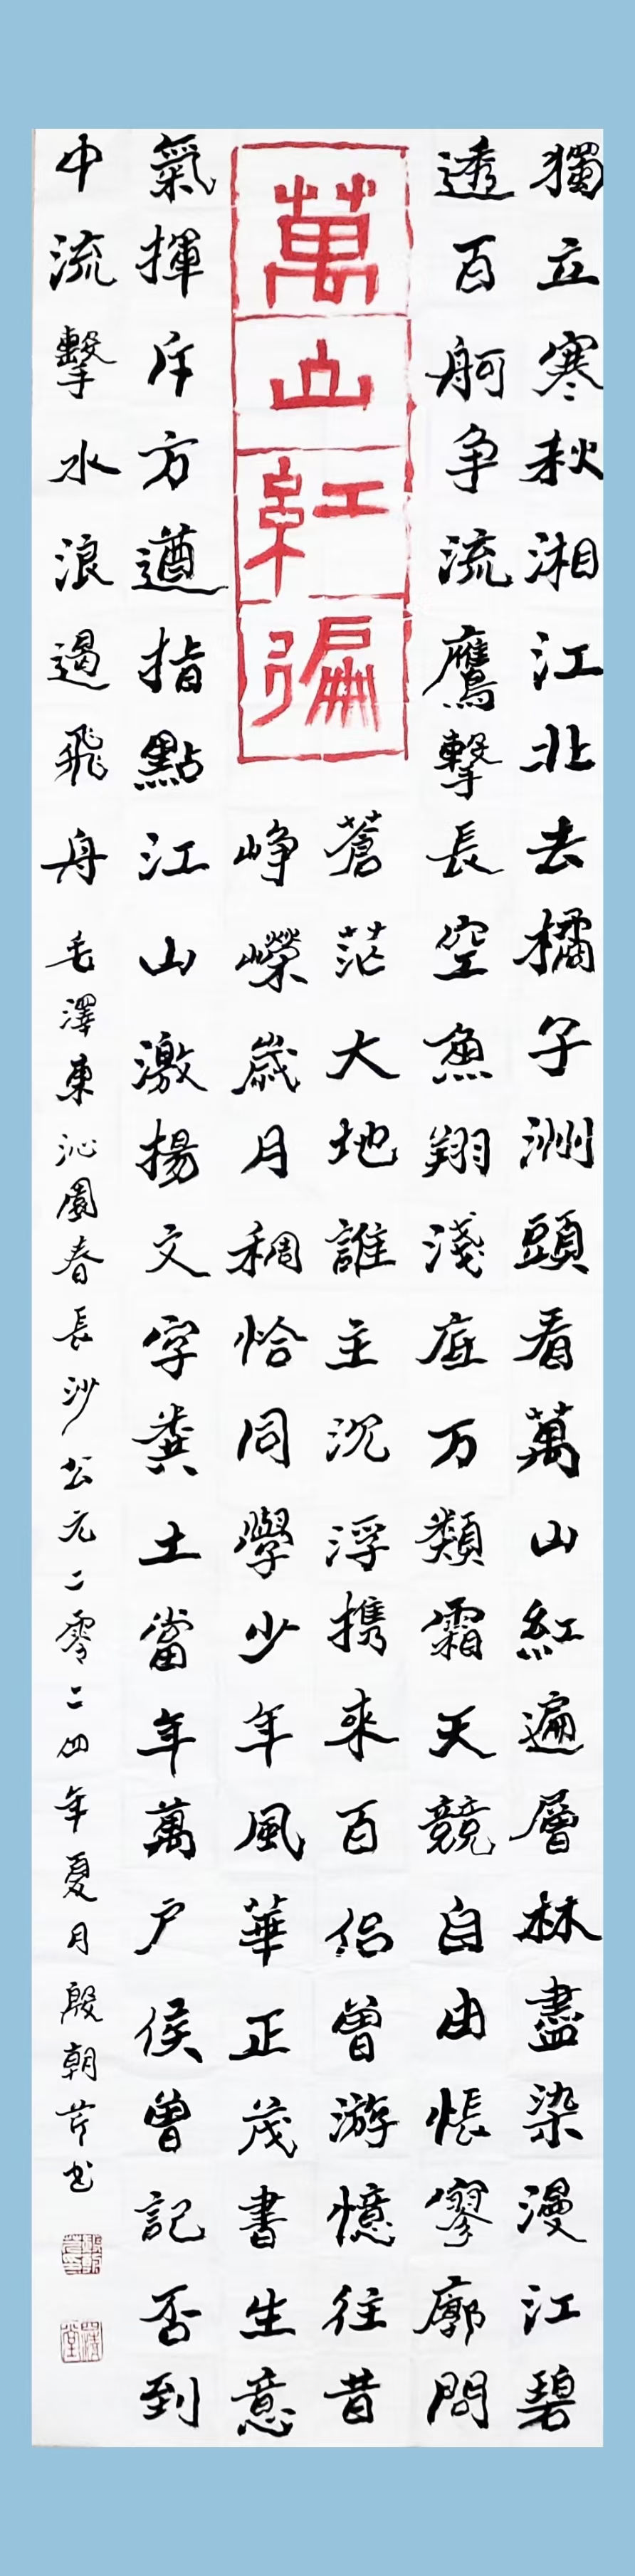 獨立寒秋湘江北去橘子洲頭看萬山紅遍層林盡染漫江碧
透百舸争流鷹擊長空魚翔淺底万類霜天競自由悵寥廓問
萬山紅徧
蒼茫大地誰主沉浮携來百侣曾游憶往昔
崢嶸歲月稠恰同學少年風華正茂書生意
氣揮斥方遒指點江山激揚文字糞土當年萬户侯曾記否到
中流擊水浪遏飛舟 毛澤東沁園春長沙公元二零二四年夏月殷朝芹书